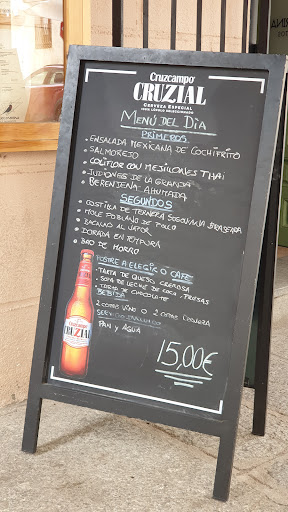 Cruzcampo
CRUZIAL
CERVEZA ESPECIAL
100% LÚPULO SELECCIONADO
MENÚ DEL DÍA
PRIMEROS
- ENSALADA MEXICANA DE COCHIFRITO
- SALMOREJO
- COLIFLOR CON MEJILLONES THAI
- JUDIONES DE LA GRANJA
- BERENJENA AHUMADA
SEGUNDOS
- COSTILLA DE TERNERA SEGOVIANA BRASEADA
- MOLE POBLANO DE POLLO
- BACALAO AL VAPOR
- DORADA EN TEMPURA
- BAO DE MORRO
POSTRE A ELEGIR O CAFE
- TARTA DE QUESO CREMOSA
- SOPA DE LECHE DE COCO - FRUTAS
- TARTA DE CHOCOLATE
BEBIDA
2 COPAS VINO O 2 COPAS CERVEZA
PAN Y AGUA
15,00€
CRUZIAL